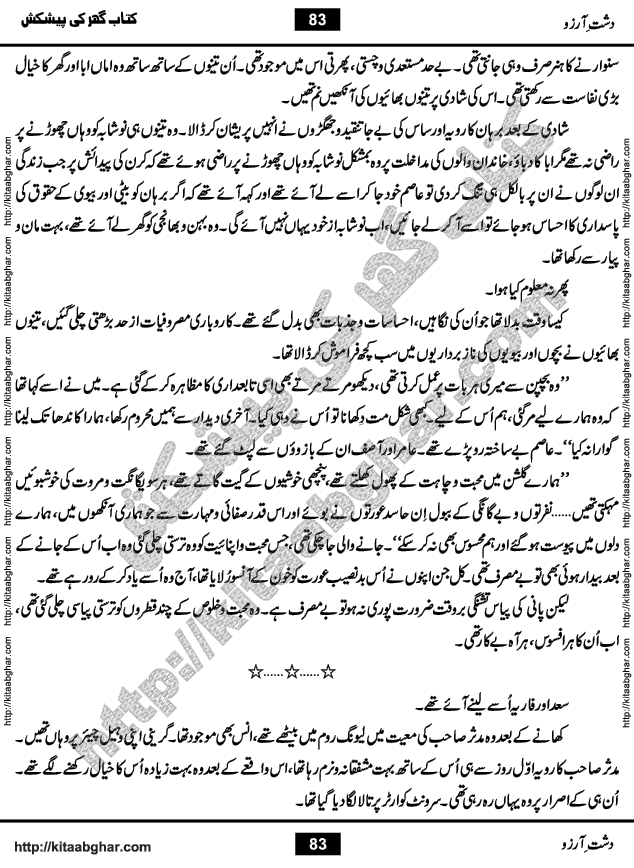 دشتِ آرزو
83
کتاب گھر کی پیشکش
سنوارنے کا ہنر صرف وہی جانتی تھی۔ بے حد مستعدی و چستی، پھرتی اس میں موجود تھی۔ اُن تینوں کے ساتھ ساتھ وہ اماں ابا اور گھر کا خیال
بڑی نفاست سے رکھتی تھی۔ اس کی شادی پر تینوں بھائیوں کی آنکھیں نم تھیں۔
شادی کے بعد برہان کا رویہ اور ساس کی بے جا تنقید و جھگڑوں نے انہیں پریشان کر ڈالا۔ وہ تینوں ہی نوشابہ کو وہاں چھوڑنے پر
راضی نہ تھے مگر ابا کا دباؤ، خاندان والوں کی مداخلت پر وہ بمشکل نوشابہ کو وہاں چھوڑنے پر راضی ہوئے تھے کہ کرن کی پیدائش پر جب زندگی
ان لوگوں نے ان پر بالکل ہی تنگ کر دی تو عاصم خود جا کر اسے لے آئے تھے اور کہہ آئے تھے کہ اگر برہان کو بیٹی اور بیوی کے حقوق کی
پاسداری کا احساس ہو جائے تو اسے آ کر لے جائیں، اب نوشابہ از خود یہاں نہیں آئے گی۔ وہ بہن و بھانجی کو گھر لے آئے تھے، بہت مان و
پیار سے رکھا تھا۔
پھر نہ معلوم کیا ہوا۔
کیسا وقت بدلا تھا جو اُن کی نگاہیں، احساسات و جذبات بھی بدل گئے تھے۔ کاروباری مصروفیات از حد بڑھتی چلی گئیں، تینوں
بھائیوں نے بچوں اور بیویوں کی ناز برداریوں میں سب کچھ فراموش کر ڈالا تھا۔
’’وہ بچپن سے میری ہر بات پر عمل کرتی تھی، دیکھو مرتے مرتے بھی اسی تابعداری کا مظاہرہ کر کے گئی ہے۔ میں نے اسے کہا تھا
کہ وہ ہمارے لیے مر گئی، ہم اُس کے لیے۔ کبھی شکل مت دِکھانا تو اُس نے وہی کیا۔ آخری دیدار سے ہمیں محروم رکھا، ہمارا کاندھا تک لینا
گوارا نہ کیا‘‘۔ عاصم بے ساختہ رو پڑے تھے۔ عامر اور آصف ان کے بازوؤں سے لپٹ گئے تھے۔
’’ہمارے گلشن میں محبت و چاہت کے پھول کھلتے تھے، پنچھی خوشیوں کے گیت گاتے تھے، ہر سو یگانگت و مروت کی خوشبوئیں
مہکتی تھیں......نفرتوں و بے گانگی کے ببول اِن حاسد عورتوں نے بوئے اور اس قدر صفائی و مہارت سے جو ہماری آنکھوں میں، ہمارے
دلوں میں پیوست ہو گئے اور ہم محسوس بھی نہ کر سکے‘‘۔ جانے والی جا چکی تھی، جس محبت و اپنائیت کو وہ ترستی چلی گئی وہ اب اُس کے جانے کے
بعد بیدار ہوئی بھی تو بے مصرف تھی۔ کل جن اپنوں نے اُس بدنصیب عورت کو خون کے آنسو رُلایا تھا، آج وہ اُسے یاد کر کے رو رہے تھے۔
لیکن پانی کی پیاس تشنگی بروقت ضرورت پوری نہ ہو تو بے مصرف ہے۔ وہ محبت و خلوص کے چند قطروں کو ترستی پیاسی چلی گئی تھی،
اب اُن کا ہر افسوس، ہر آہ بے کار تھی۔
☆......☆......☆
سعد اور فاریہ اُسے لینے آئے تھے۔
کھانے کے بعد وہ مدثر صاحب کی معیت میں لیونگ روم میں بیٹھے تھے، انس بھی موجود تھا۔ گرینی اپنی وہیل چیئر پر وہاں تھیں۔
مدثر صاحب کا رویہ اوّل روز سے ہی اُس کے ساتھ بہت مشفقانہ و نرم رہا تھا، اس واقعے کے بعد وہ بہت زیادہ اُس کا خیال رکھنے لگے تھے۔
اُن ہی کے اصرار پر وہ یہاں رہ رہی تھی۔ سرونٹ کوارٹر پر تالا لگا دیا گیا تھا۔
http://kitaabghar.com
http://kitaabghar.com
http://kitaabghar.com
http://kitaabghar.com
http://kitaabghar.com
http://kitaabghar.com
http://kitaabghar.com
http://kitaabghar.com
http://kitaabghar.com
http://kitaabghar.com
http://kitaabghar.com
http://kitaabghar.com
کتاب گھر کی پیشکش
http://kitaabghar.com
دشتِ آرزو
83
http://kitaabghar.com